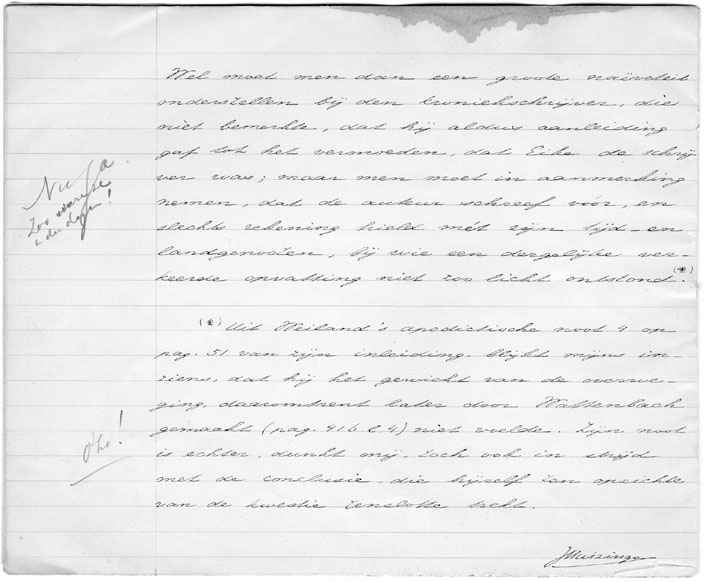 Wel moet men dan een groote naïveteit
onderstellen bij den kroniekschrijver, die
niet bemerkte, dat hij aldus aanleiding
gaf tot het vermoeden, dat Eike de schrij
ver was; maar men moet in aanmerking
nemen, dat de auteur schreef vóór, en
slechts rekening hield mét zijn tijd- en
landgenooten, bij wie een dergelijke ver-
keerde opvatting niet zoo licht ontstond. (*)
Nu ja.
Zoo waren ze
in die dagen!
(*) Uit Weiland's apodictische noot 4 op
pag. 51 van zijn inleiding, blijkt mijns in-
ziens, dat hij het gewicht van de overwe-
ging, daaromtrent later door Wattenbach
gemaakt (pag. 416 l. 4) niet voelde. Zijn noot
is echter, dunkt mij, toch ook in strijd
met de conclusie, die hijzelf ten opzichte
van de kwestie tenslotte trekt.
Oho!
JHuizinga